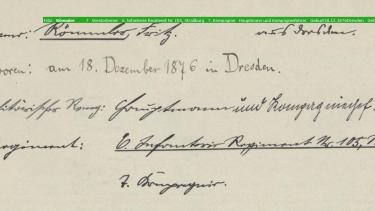 Fritz Römmler 7 Westenhienen 6. Infanterie Regiment Nr. 105, Straßburg 7. Kompagnie Hauptmann und Kompagniechef Geburt 18.12.1876 Dresden
Römmler, Fritz. aus Dresden.
oren: am 18. Dezember 1876 in Dresden.
litärischer Rang: Hauptmann und Kompagniechef.
egiment: 6. Infanterie Regiment Nr. 105,
7. Kompagnie.